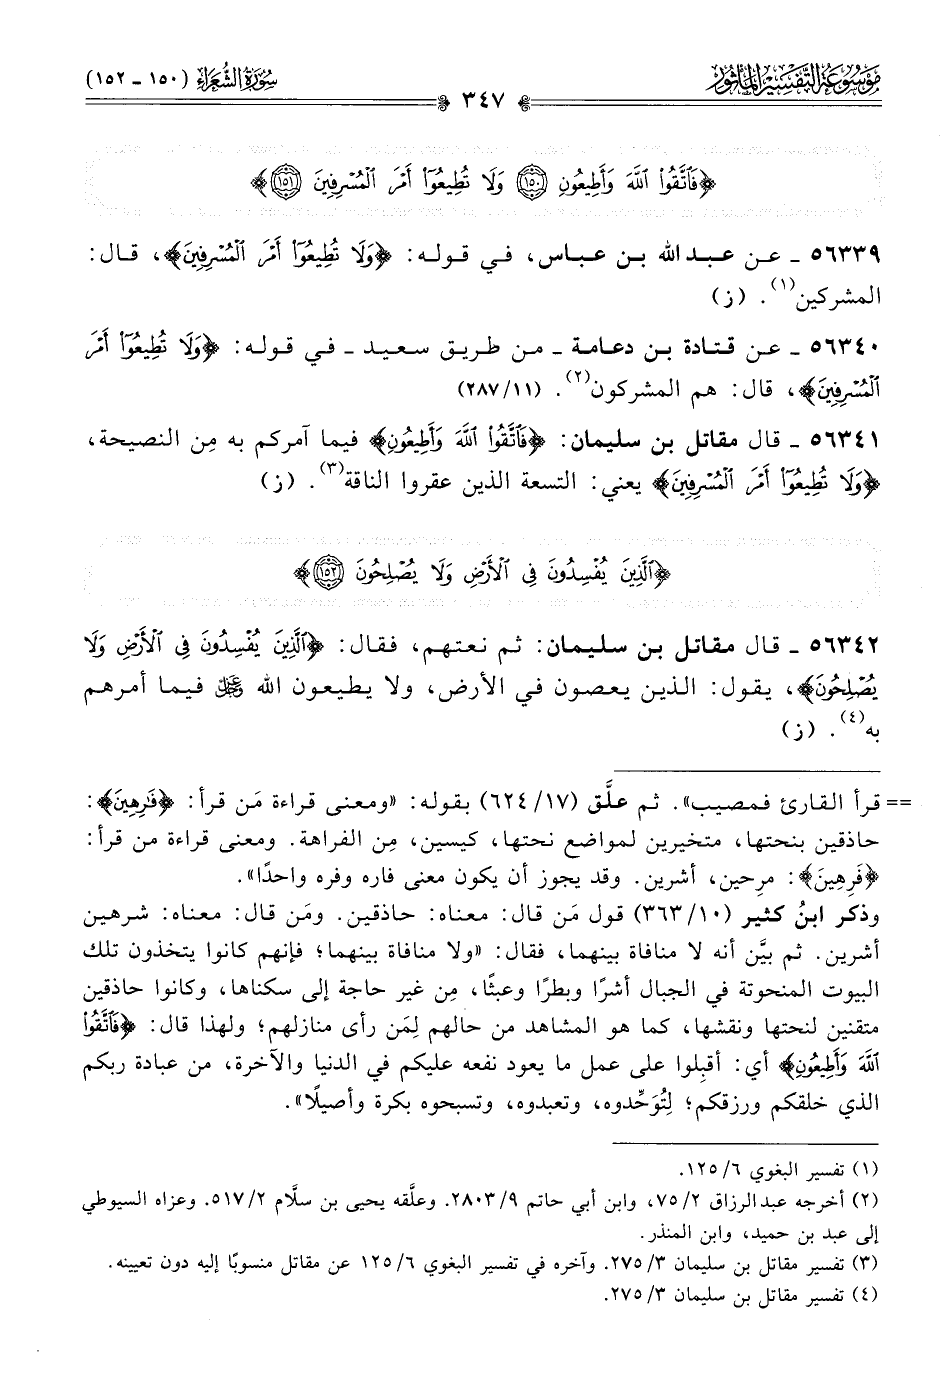 موسوعة التفسير المأثور
سورة الشعراء (١٥٠ ـ ١٥٢)
٣٤٧
﴿فَاتَّقُوا اللَّهَ وَأَطِيعُونِ (١٥٠) وَلَا تُطِيعُوا أَمْرَ الْمُسْرِفِينَ (١٥١)﴾
٥٦٣٣٩ ـ عن عبد الله بن عباس، في قوله: ﴿وَلَا تُطِيعُوا أَمْرَ الْمُسْرِفِينَ﴾، قال:
المشركين(١). (ز)
٥٦٣٤٠ ـ عن قتادة بن دعامة ـ من طريق سعيد ـ في قوله: ﴿وَلَا تُطِيعُوا أَمْرَ
الْمُسْرِفِينَ﴾، قال: هم المشركون(٢). (٢٨٧/١١)
٥٦٣٤١ ـ قال مقاتل بن سليمان: ﴿فَاتَّقُوا اللَّهَ وَأَطِيعُونِ﴾ فيما آمركم به مِن النصيحة،
﴿وَلَا تُطِيعُوا أَمْرَ الْمُسْرِفِينَ﴾ يعني: التسعة الذين عقروا الناقة(٣). (ز)
﴿الَّذِينَ يُفْسِدُونَ فِي الْأَرْضِ وَلَا يُصْلِحُونَ (١٥٢)﴾
٥٦٣٤٢ ـ قال مقاتل بن سليمان: ثم نعتهم، فقال: ﴿الَّذِينَ يُفْسِدُونَ فِي الْأَرْضِ وَلَا
يُصْلِحُونَ﴾، يقول: الذين يعصون في الأرض، ولا يطيعون الله ﷿ فيما أمرهم
به(٤). (ز)
== قرأ القارئ فمصيب». ثم علَّق (٦٢٤/١٧) بقوله: «ومعنى قراءة مَن قرأ: ﴿فَارِهِينَ﴾:
حاذقين بنحتها، متخيرين لمواضع نحتها، كيسين، مِن الفراهة. ومعنى قراءة من قرأ:
﴿فَرِهِينَ﴾: مرِحين، أشرين. وقد يجوز أن يكون معنى فاره وفره واحدًا».
وذكر ابنُ كثير (٣٦٣/١٠) قول مَن قال: معناه: حاذقين. ومَن قال: معناه: شرهين
أشرين. ثم بيَّن أنه لا منافاة بينهما، فقال: «ولا منافاة بينهما؛ فإنهم كانوا يتخذون تلك
البيوت المنحوتة في الجبال أشرًا وبطرًا وعبثًا، مِن غير حاجة إلى سكناها، وكانوا حاذقين
متقنين لنحتها ونقشها، كما هو المشاهد من حالهم لِمَن رأى منازلهم؛ ولهذا قال: ﴿فَاتَّقُوا
اللَّهَ وَأَطِيعُونِ﴾ أي: أقبِلوا على عمل ما يعود نفعه عليكم في الدنيا والآخرة، من عبادة ربكم
الذي خلقكم ورزقكم؛ لِتُوَحِّدوه، وتعبدوه، وتسبحوه بكرة وأصيلًا».
(١) تفسير البغوي ١٢٥/٦.
(٢) أخرجه عبد الرزاق ٧٥/٢، وابن أبي حاتم ٢٨٠٣/٩. وعلَّقه يحيى بن سلَّام ٥١٧/٢. وعزاه السيوطي
إلى عبد بن حميد، وابن المنذر.
(٣) تفسير مقاتل بن سليمان ٢٧٥/٣. وآخره في تفسير البغوي ١٢٥/٦ عن مقاتل منسوبًا إليه دون تعيينه.
(٤) تفسير مقاتل بن سليمان ٢٧٥/٣.